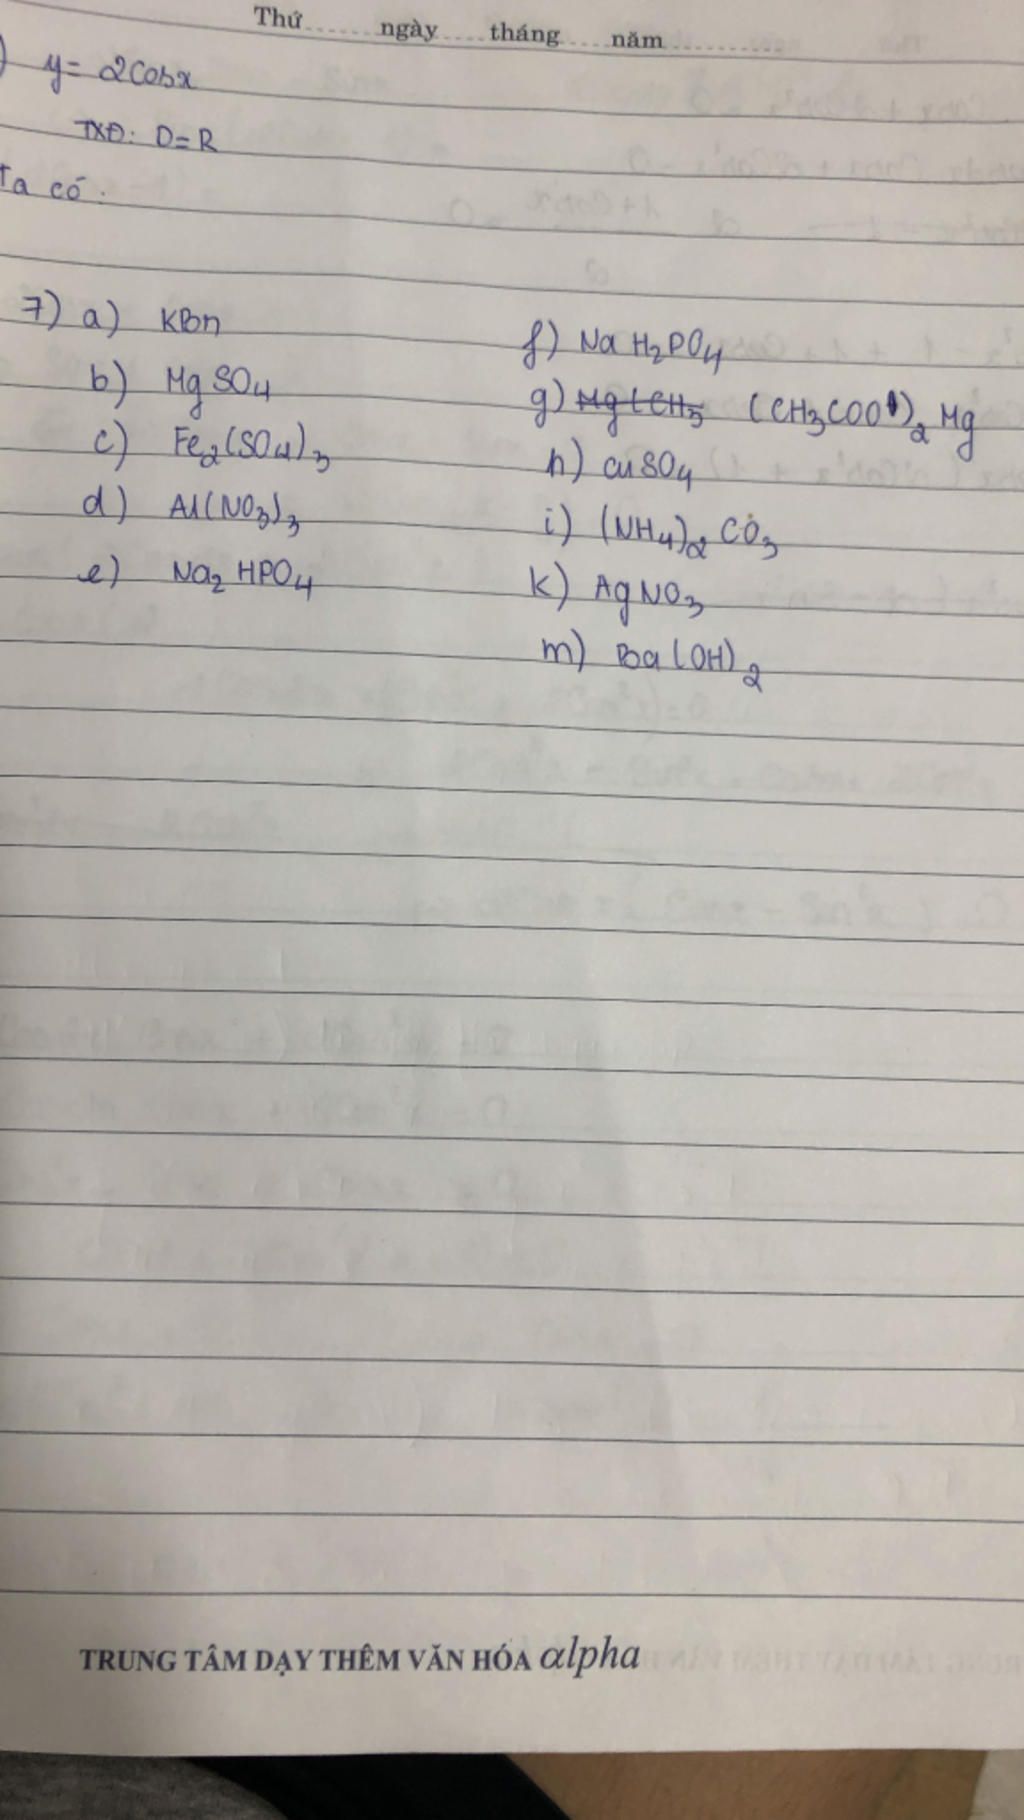 Thứ ngày tháng năm
) y = 2Cosx
TXĐ: D=R
Ta có :
7) a) KBr
b) MgSO4
c) Fe2(SO4)3
d) Al(NO3)3
e) Na2HPO4
f) NaH2PO4
g) Mg(CH3 (CH3COO)2Mg
h) CuSO4
i) (NH4)2CO3
k) AgNO3
m) Ba(OH)2
TRUNG TÂM DẠY THÊM VĂN HÓA αlpha